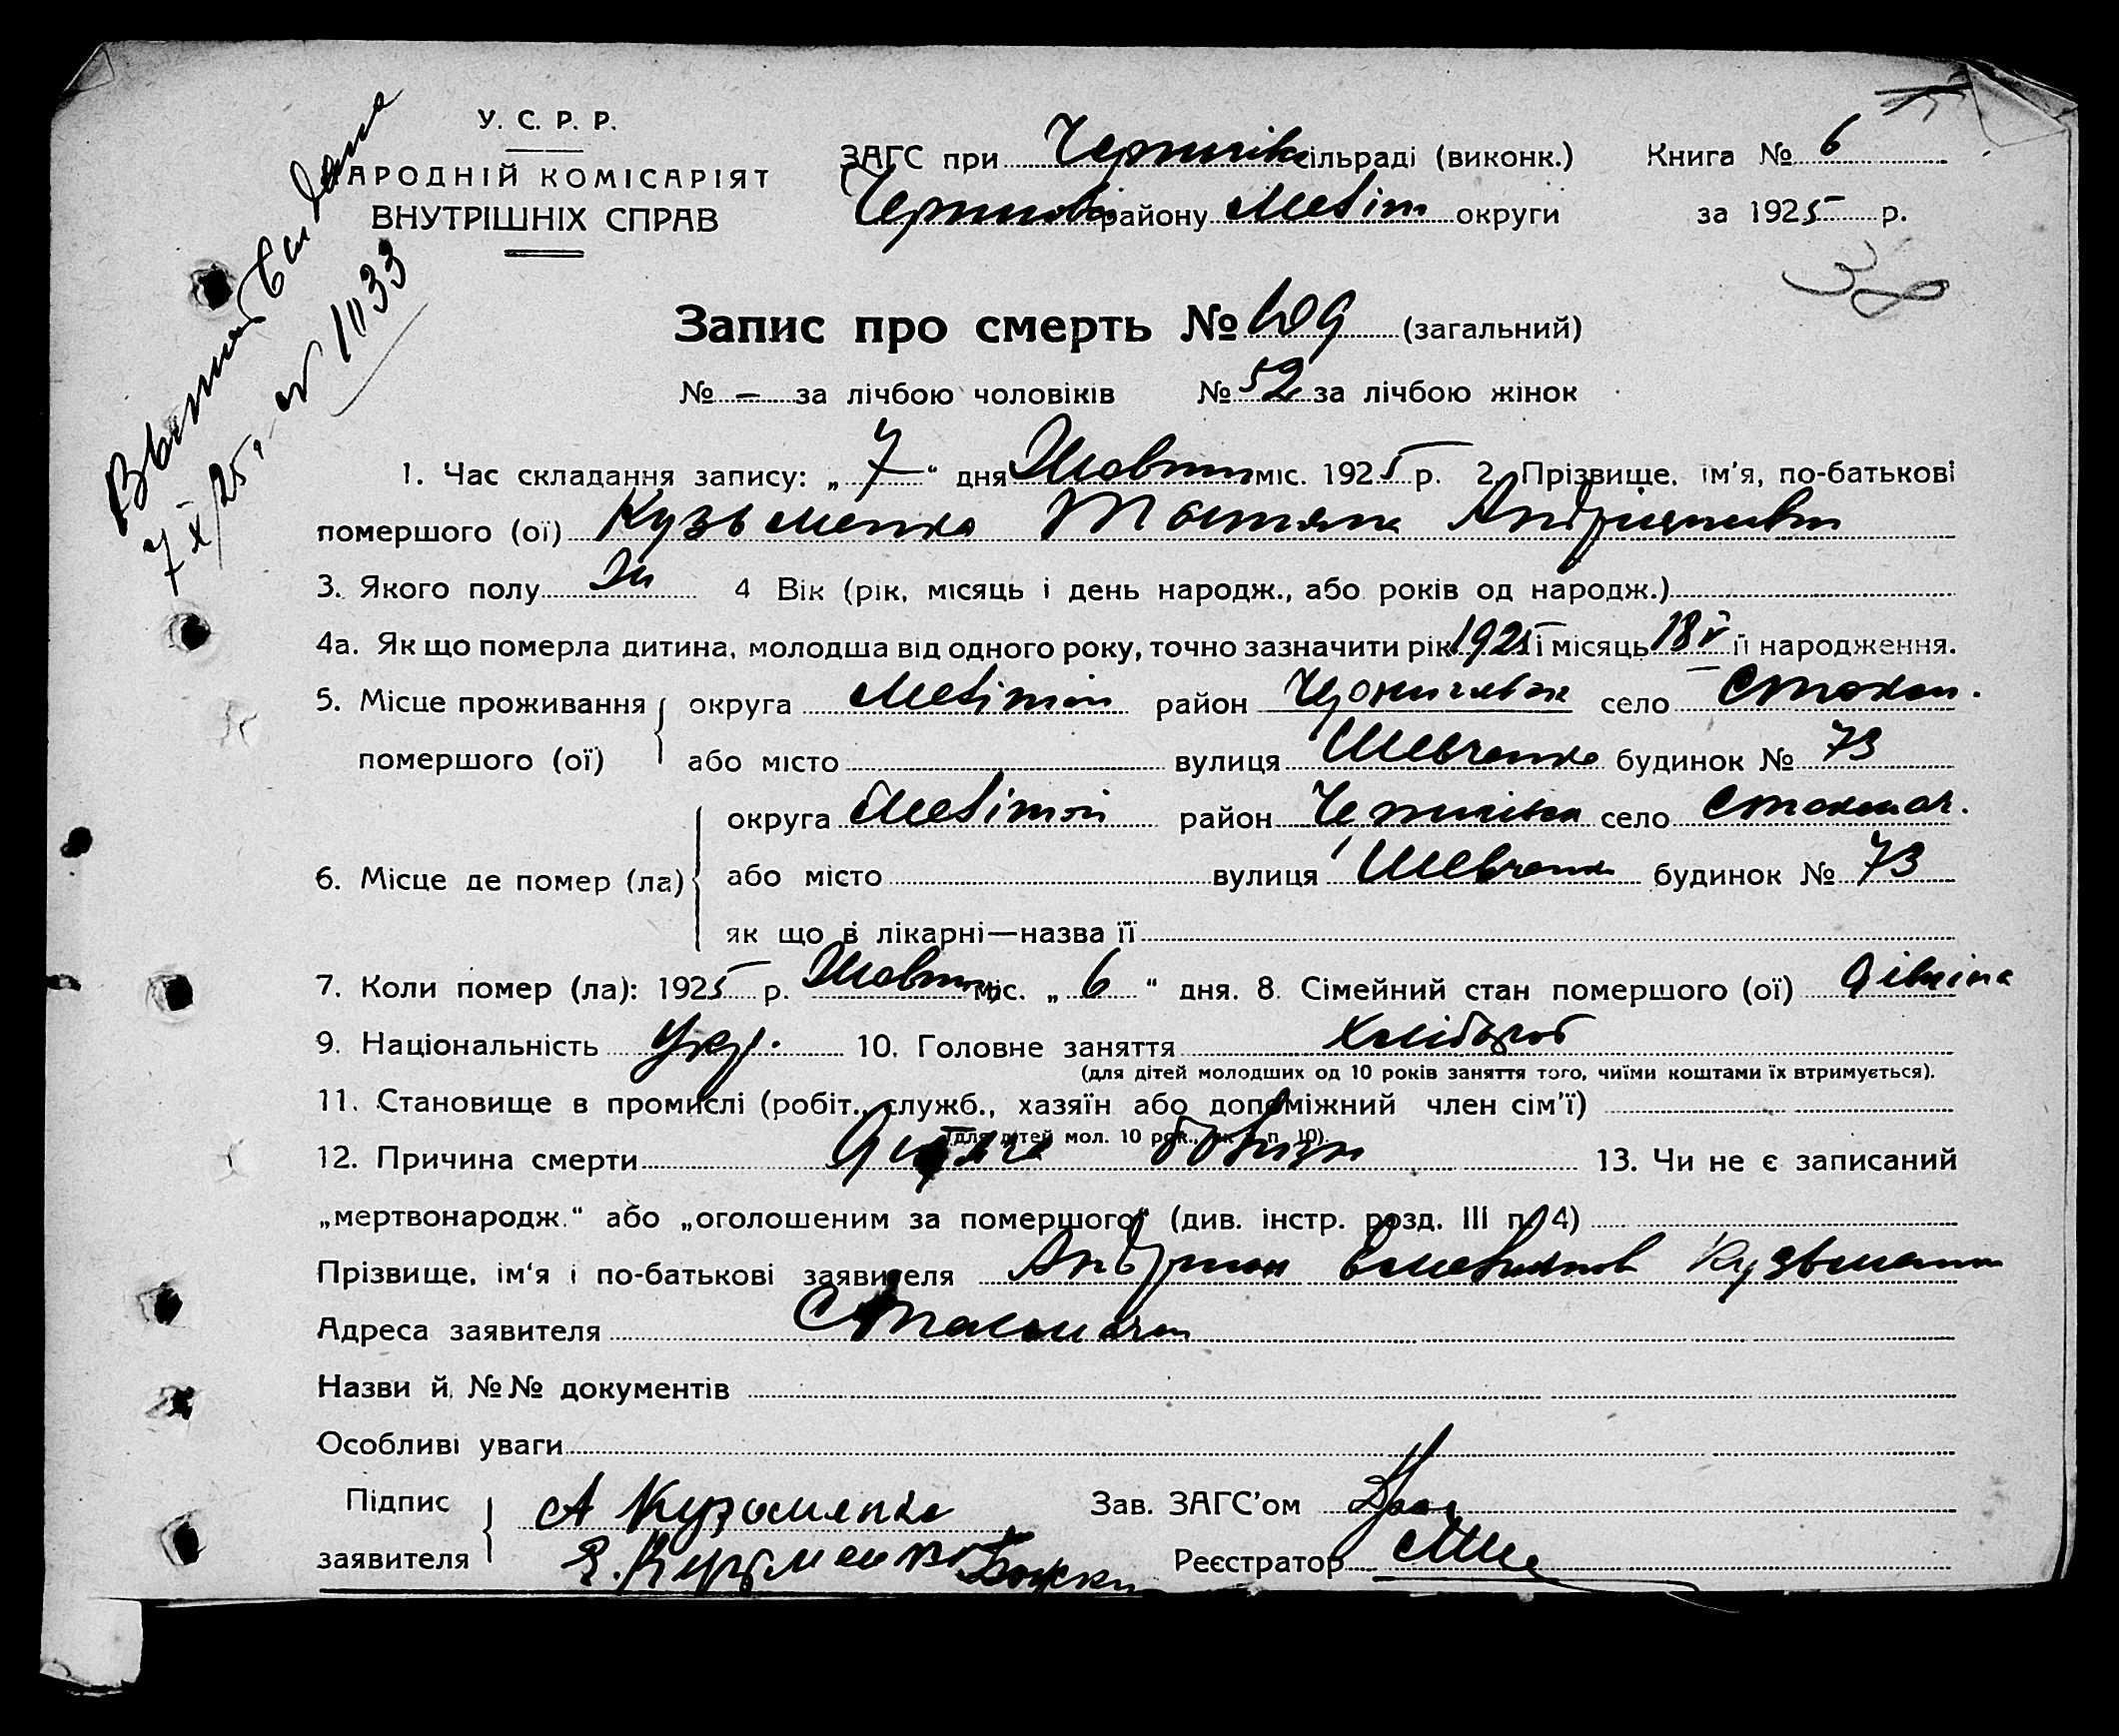 У. С. Р. Р.
НАРОДНІЙ КОМІСАРІЯТ
ВНУТРІШНІХ СПРАВ
ЗАГС при Чернигів сільраді (виконк.) Книга № 6
району Меліт округи за 1925 р.
38
Выпись выдана
7/X/25, № 1033
Запис про смерть № 109 (загальний)
№ — за лічбою чоловіків № 52 за лічбою жінок
1. Час складання запису: „7“ дня Жовтн міс. 1925 р. 2. Прізвище, ім'я, по-батькові
помершого (ої) Кузьменко Татяна Андрияновна
3. Якого полу Ж 4 Вік (рік, місяць і день народж., або років од народж.)
4а. Як що померла дитина, молодша від одного року, точно зазначити рік 1925 і місяць 18 V її народження.
5. Місце проживання округа Мелітоп район село Токмач.
помершого (ої) або місто вулиця Шевченко будинок № 73
округа Мелітоп район Чернигівка село Токмач.
6. Місце де помер (ла) або місто вулиця Шевченк будинок № 73
як що в лікарні—назва її
7. Коли помер (ла): 1925 р. Жовтн міс. „6“ дня. 8. Сімейний стан помершого (ої) Дівчина
9. Національність Укр. 10. Головне заняття Хлібороб
(для дітей молодших од 10 років заняття того, чиїми коштами їх втримується).
11. Становище в промислі (робіт., служб., хазяїн або допоміжний член сім'ї)
(для дітей мол. 10 рок., як в п. 10).
12. Причина смерти 13. Чи не є записаний
„мертвонародж.“ або „оголошеним за помершого“ (див. інстр. розд. III п. 4)
Прізвище, ім'я і по-батькові заявителя Андриян Кузьменко
Адреса заявителя
Назви й №№ документів
Особливі уваги
Підпис А Кузоменко Зав. ЗАГС'ом
заявителя Кузьменко Реєстратор